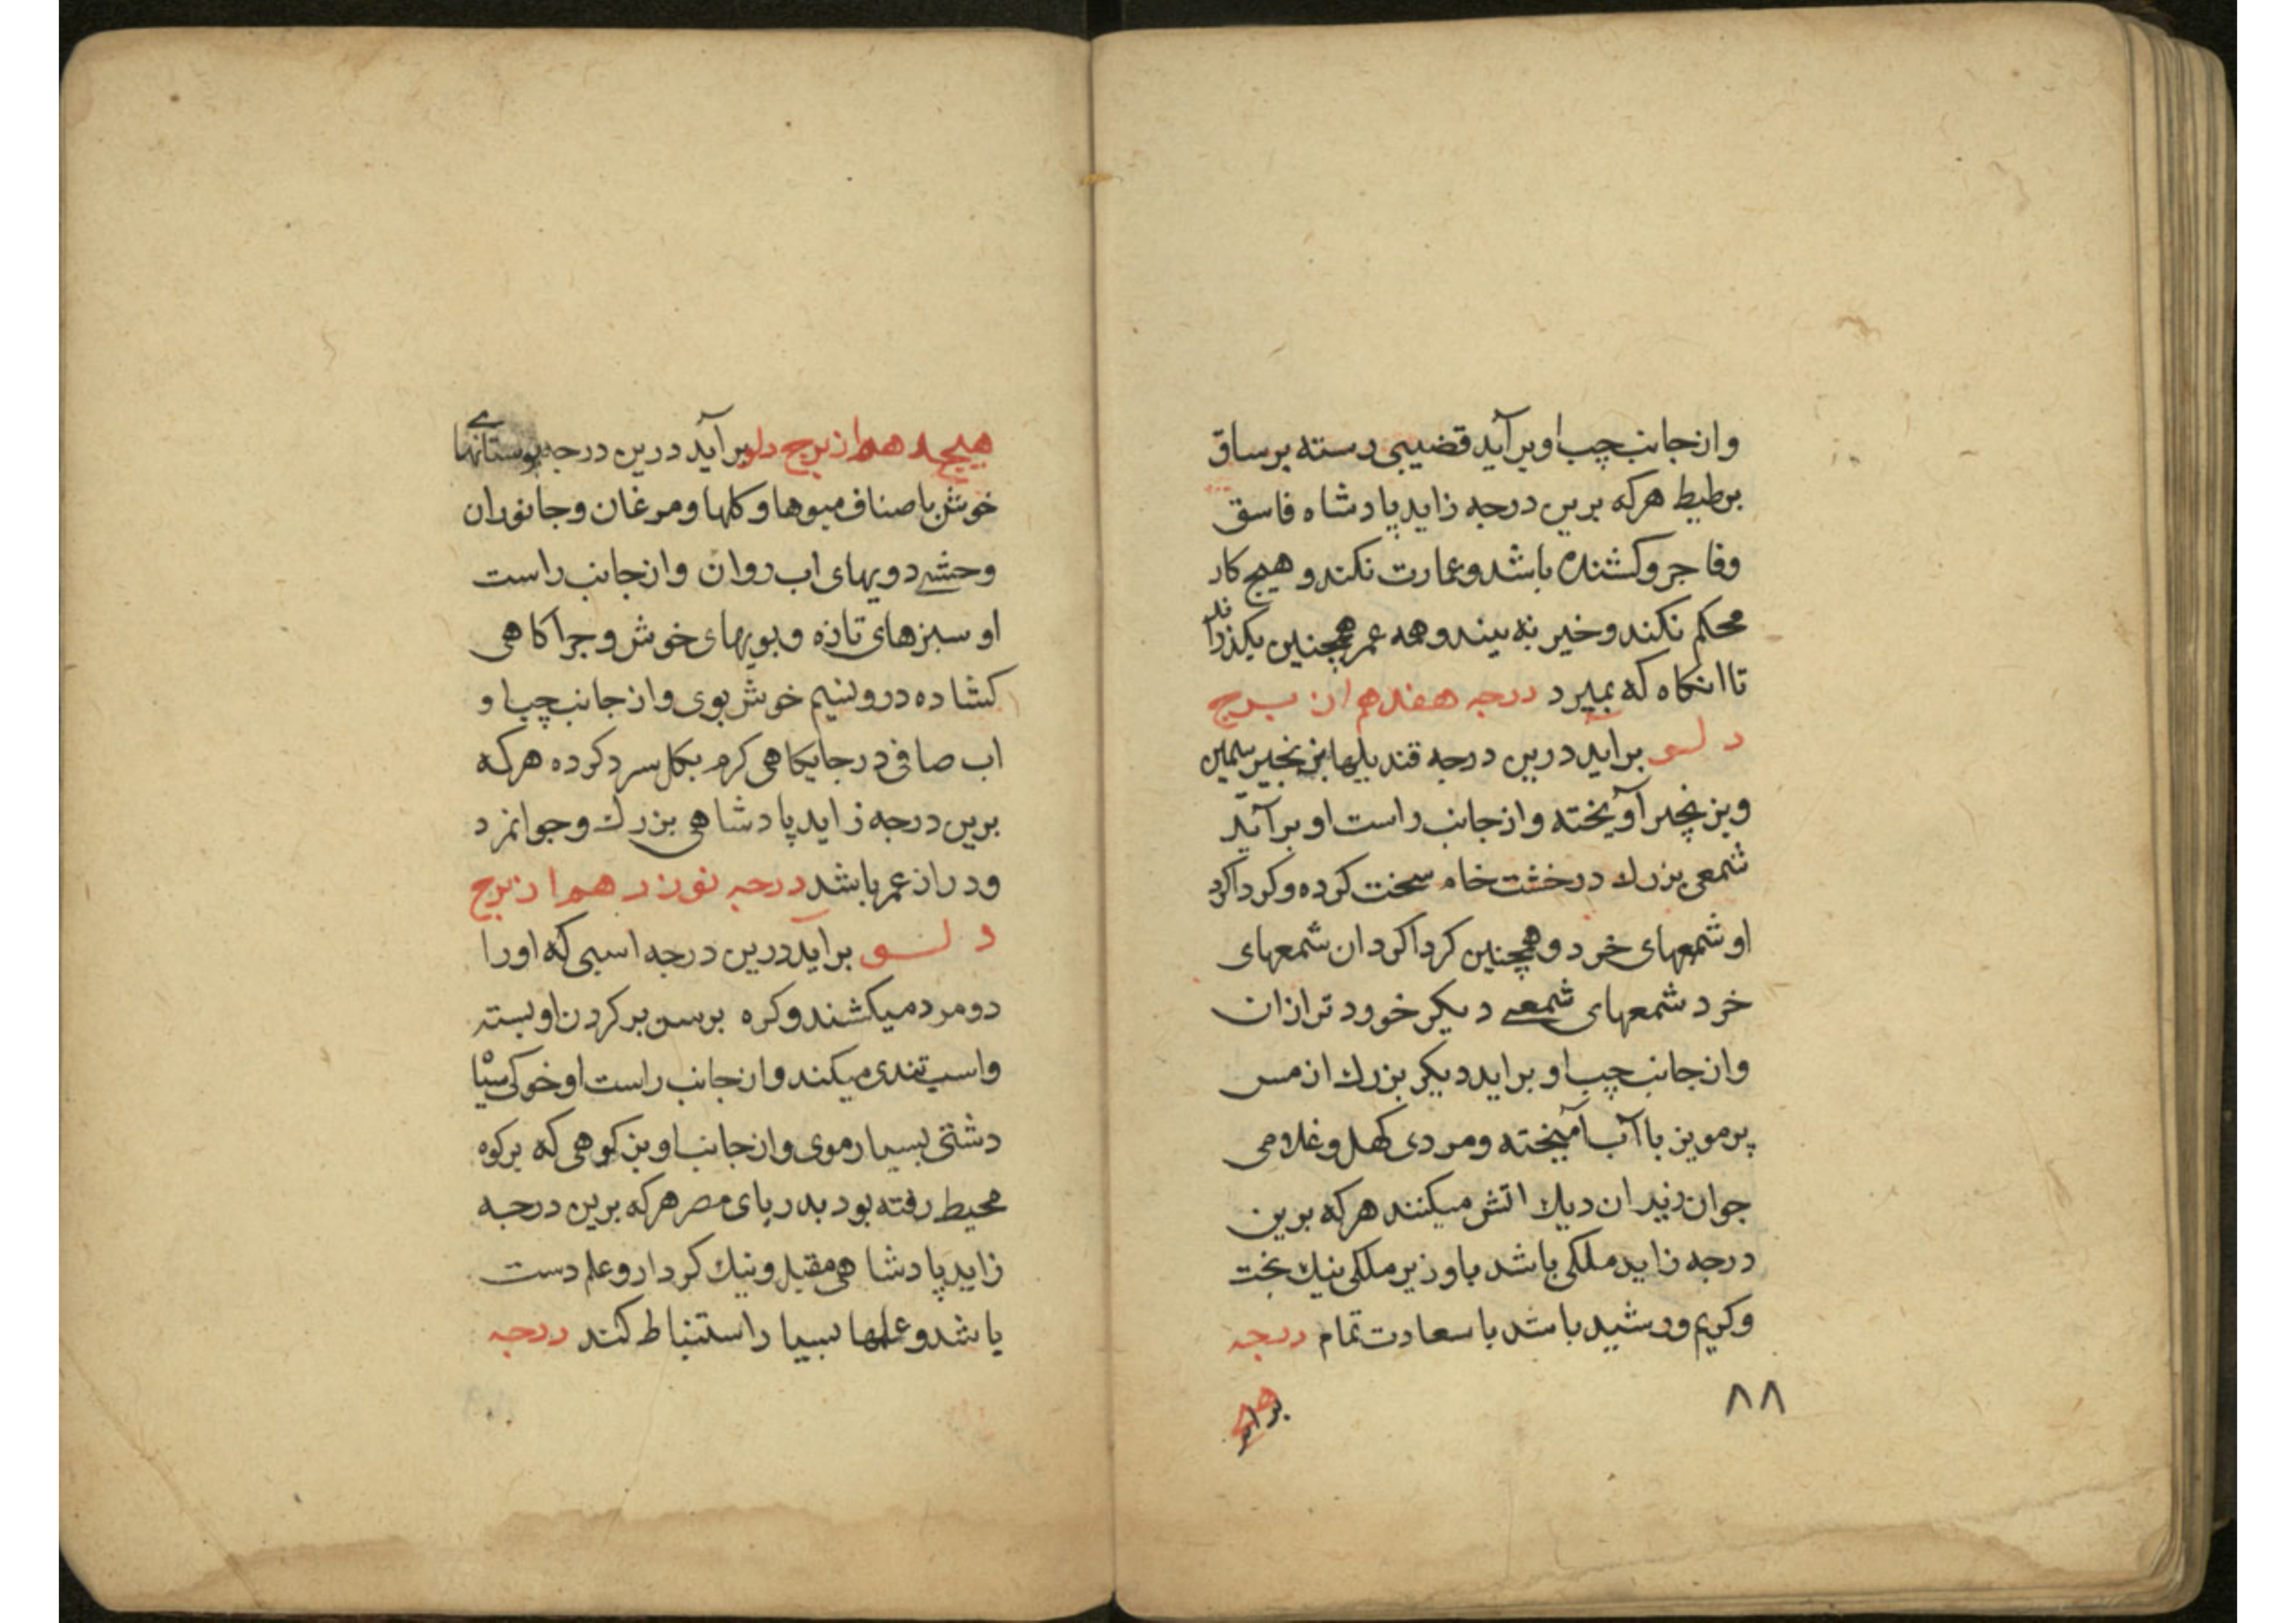 وازجانب چپ او برآید قضیبی رسته برساق
بربطیط هرکه برین درجه زاید پادشاه فاسق
وفاجر وکشنده باشد وعمارت نکند و هیچ کار
محکم نکند وخیر نه بیند وهمه عمر همچنین بکذراند
تا انکاه که بمیرد درجه هفدهم از برج
دلو براید درین درجه قندیلها بزنجیر سیمین
وبزنجیر آویخته وازجانب راست او برآید
شمعی بزرك درخشت خام سخت کرده وکرداکرد
او شمعهای خرد وهمچنین کرداکرد ان شمعهای
خرد شمعهای شمعے دیکر خورد تر ازان
وازجانب چپ او براید دیکی بزرك از مس
پر مویز باآب آمیخته ومردی کهل وغلامی
جوان زیر ان دیك اتش میکنند هرکه برین
درجه زاید ملکی باشد باوزیر ملکی نیك بخت
وکریم ورشید باشد باسعادت تمام درجه
۸۸
هیجدهم از برج دلو برآید درین درجه بوستانهاے
خوش باصناف میوها وکلها ومرغان وجانوران
وحشے دویهای اب روان وازجانب راست
او سبزهای تازه وبویهای خوش وچراکاهی
کشاده درو نسیم خوش بوی وازجانب چپ او
اب صافی درجایکاهی کرم بکل سرد کرده هرکه
برین درجه زاید پادشاهی بزرك وجوانمرد
ودراز عمر باشد درجه نوزدهم از برج
دلو برآید درین درجه اسبی که اورا
دومرد میکشند وکره برسن بر کردن او بسته
واسب تندی میکند وازجانب راست او خوکی سیاه
دشتی بسیار موی وازجانب او بزکوهی که برکوه
محیط رفته بود بدریای مصر هرکه برین درجه
زاید پادشاهی مقبل ونیك کردار وعلم دست
باشد وعلمها بسیار استنباط کند درجه